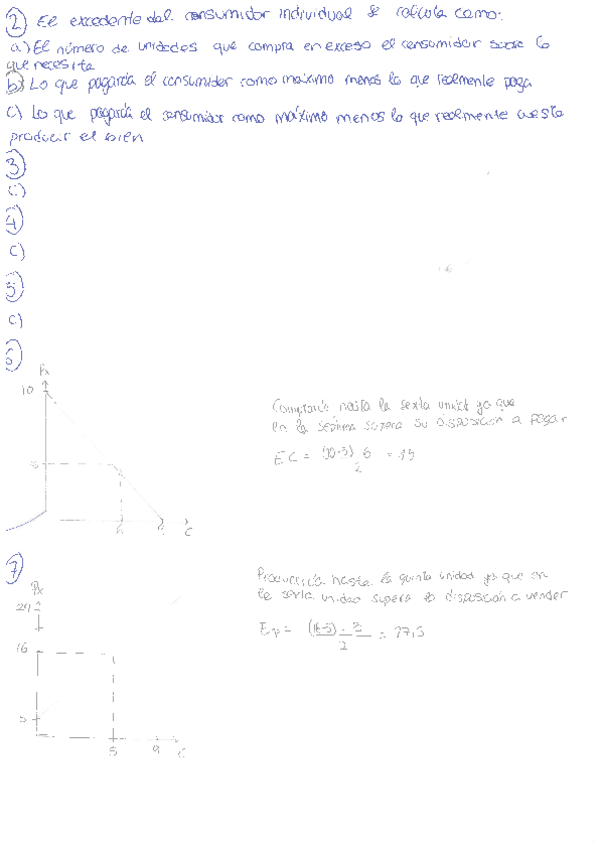 2) El excedente del consumidor individual se calcula como:
a) El número de unidades que compra en exceso el consumidor sobre lo
que necesita
b) Lo que pagaría el consumidor como máximo menos lo que realmente paga
c) Lo que pagaría el consumidor como máximo menos lo que realmente cuesta
producir el bien
3)
c)
4)
c)
5)
c)
6)
Px
10
C
Compraría hasta la sexta unidad ya que
en la séptima supera su disposición a pagar
EC =
2
7)
Px
16
5
5 9 C
Produciría hasta la quinta unidad ya que en
la sexta unidad supera disposición a vender
Ep =
2